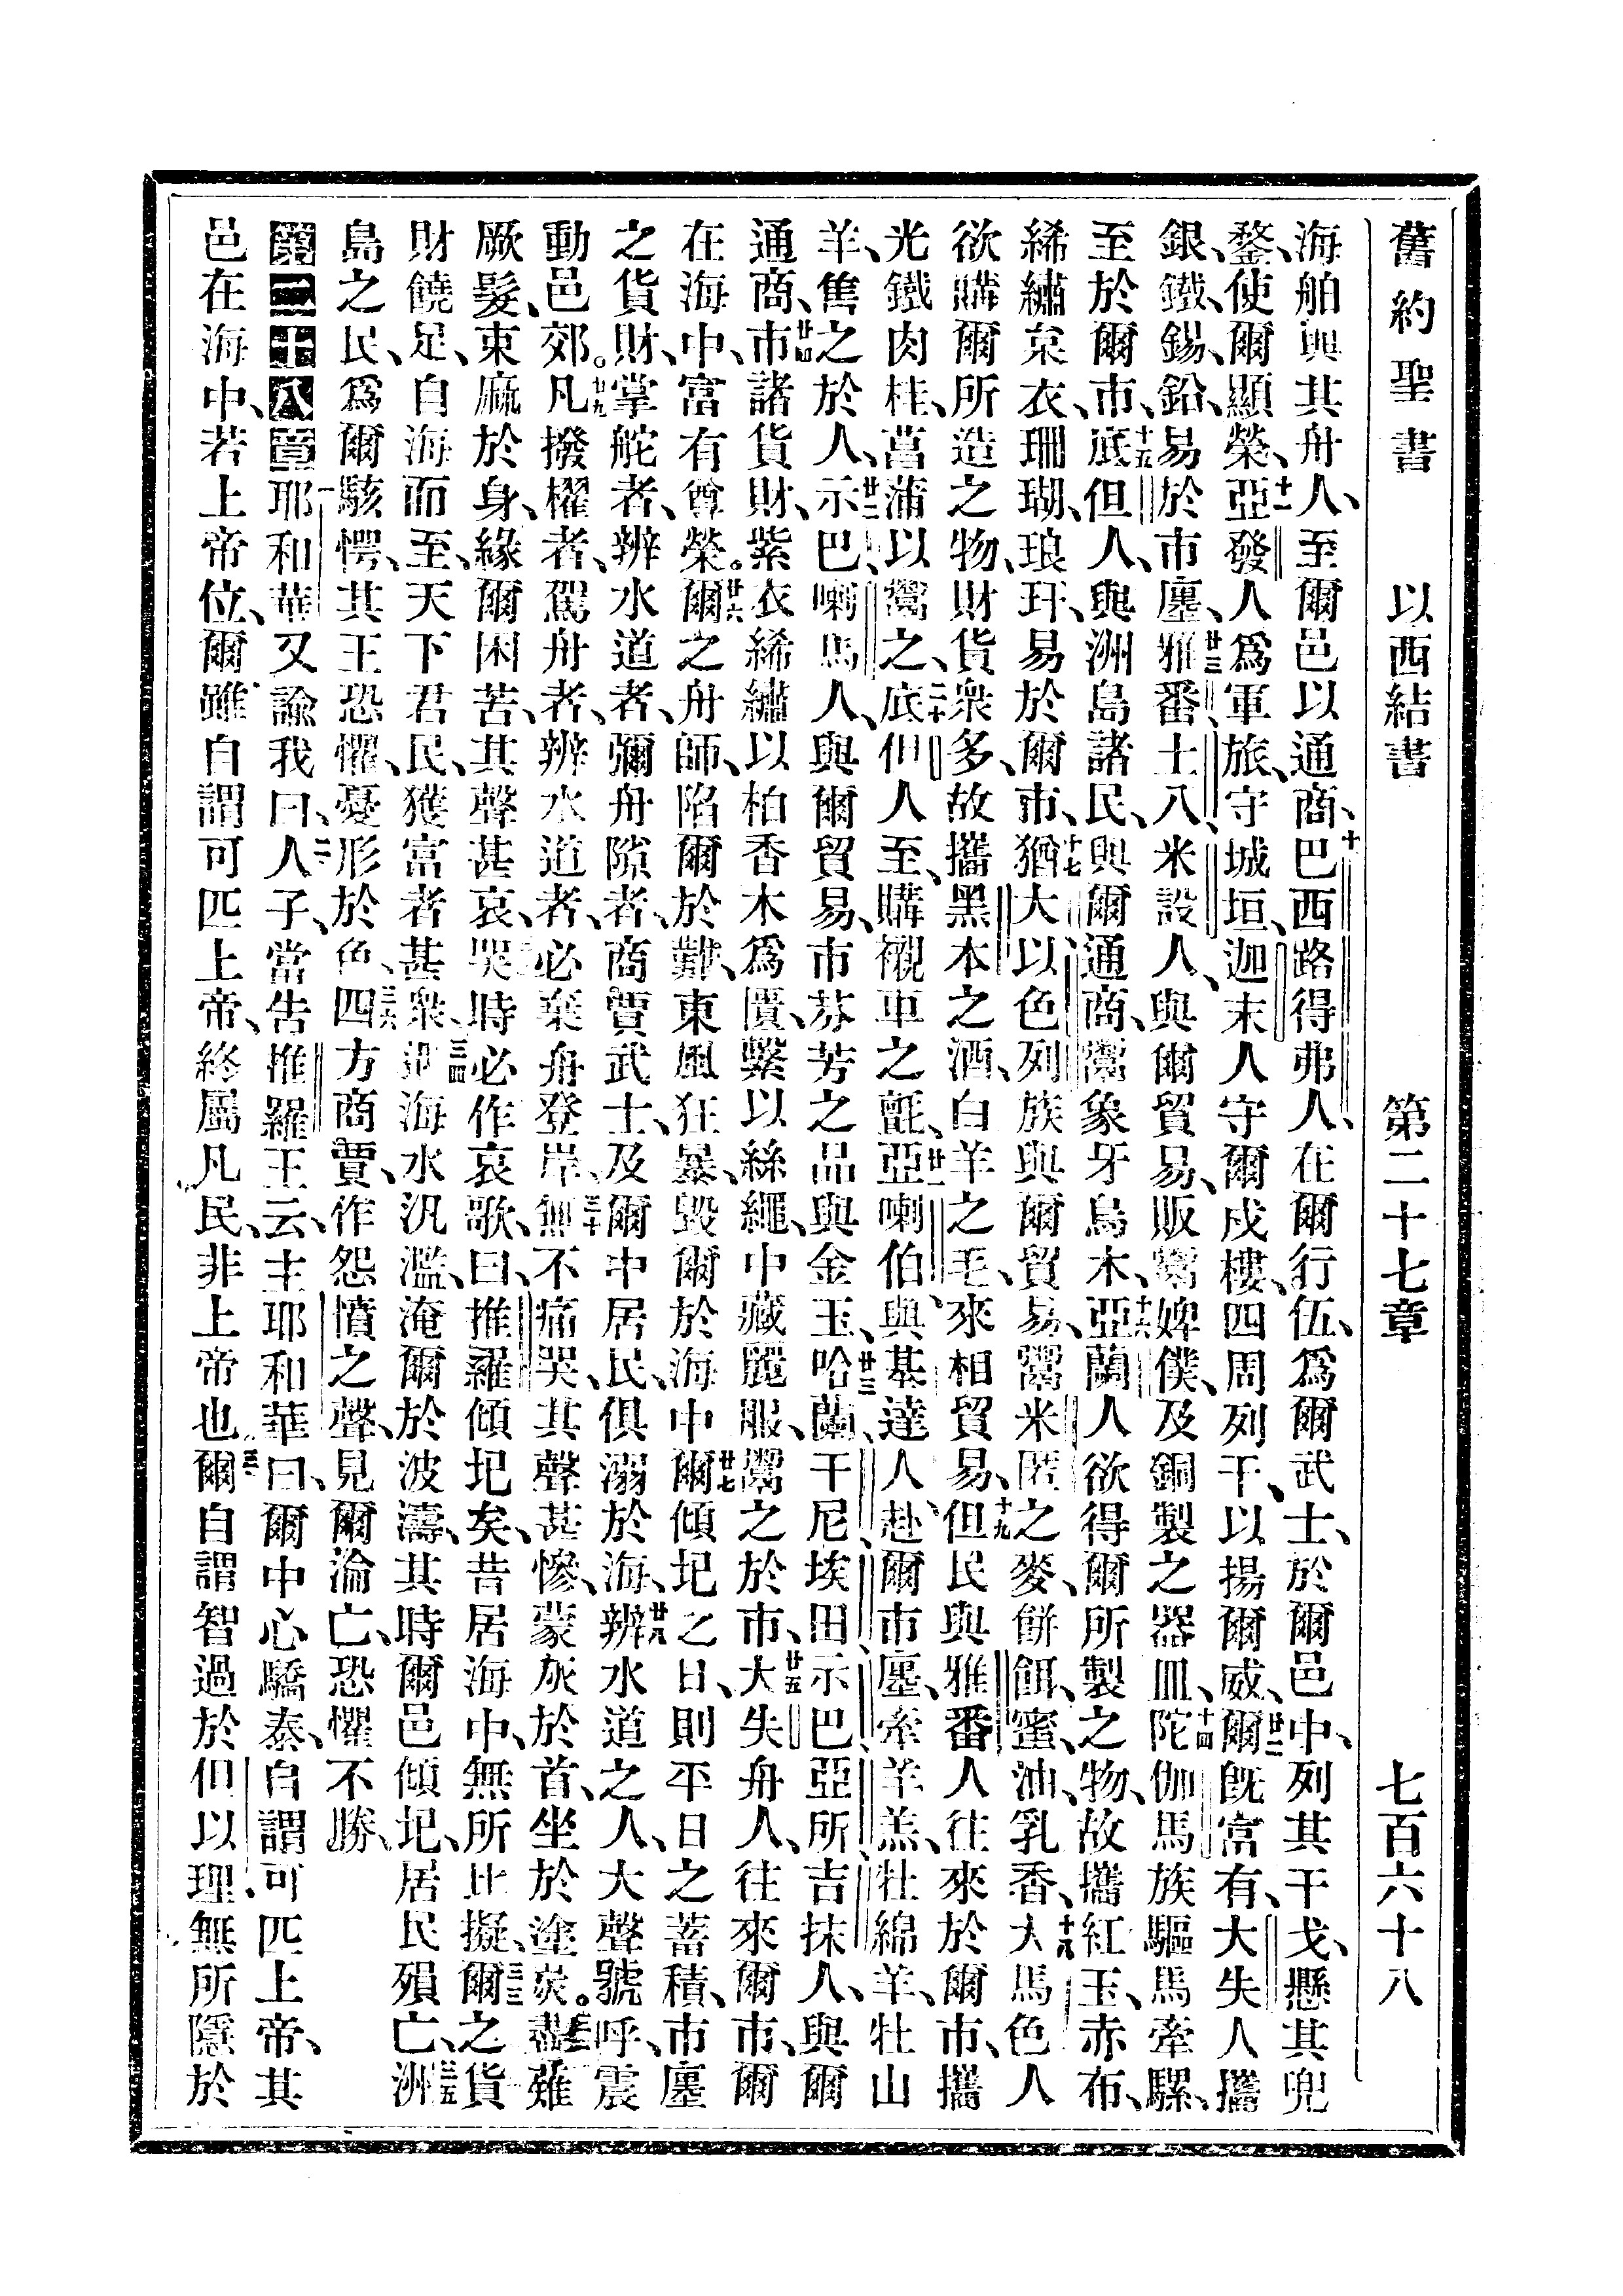 舊約聖書 以西結書 第二十七章 七百六十八
海舶與其舟人、至爾邑以通商、十巴西路得弗人、在爾行伍、爲爾武士、於爾邑中、列其干戈、懸其兜
鍪、使爾顯榮、十一亞發人爲軍旅、守城垣、迦末人守爾戍樓、四周列干、以揚爾威、十二爾旣富有、大失人攜
銀、鐵、錫、鉛、易於市廛、十三雅番土八米設人、與爾貿易、販鬻婢僕、及銅製之器皿、十四陀伽馬族驅馬牽騾、
至於爾市、十五底但人、與洲島諸民、與爾通商、鬻象牙烏木、十六亞蘭人欲得爾所製之物、故攜紅玉、赤布、
絺繡枲衣、珊瑚、琅玕、易於爾市、十七猶大以色列族與爾貿易、鬻米匿之麥、餅餌、蜜、油、乳香、十八大馬色人
欲購爾所造之物、財貨衆多、故攜黑本之酒、白羊之毛、來相貿易、十九但民與雅番人往來於爾市、攜
光鐵肉桂、菖蒲以鬻之、二十底但人至、購襯車之氈、廿一亞喇伯與基達人、赴爾市廛、牽羊羔、牡綿羊、牡山
羊、售之於人、廿二示巴、喇馬人、與爾貿易、市芬芳之品、與金玉、廿三哈蘭、干尼、埃田、示巴、亞所、吉抹人、與爾
通商、廿四市諸貨財、紫衣絺繡、以柏香木爲匱、繫以絲繩、中藏麗服、鬻之於市、廿五大失舟人、往來爾市、爾
在海中、富有尊榮。廿六爾之舟師、陷爾於難、東風狂暴、毀爾於海中、廿七爾傾圮之日、則平日之蓄積、市廛
之貨財、掌舵者、辨水道者、彌舟隙者、商賈武士、及爾中居民、俱溺於海、廿八辨水道之人、大聲號呼、震
動邑郊。廿九凡撥櫂者、駕舟者、辨水道者、必棄舟登岸、三十無不痛哭、其聲甚慘、蒙灰於首、坐於塗炭。三一盡薙
厥髮、束麻於身、緣爾困苦、其聲甚哀、三二哭時必作哀歌、曰、推羅傾圮矣、昔居海中、無所比擬、三三爾之貨
財饒足、自海而至、天下君民、獲富者甚衆、三四迨海水汎濫、淹爾於波濤、其時爾邑傾圮、居民殞亡、三五洲
島之民、爲爾駭愕、其王恐懼、憂形於色、三六四方商賈、作怨憤之聲、見爾淪亡、恐懼不勝、
第二十八章 一耶和華又諭我曰、二人子、當告推羅王云、主耶和華曰、爾中心驕泰、自謂可匹上帝、其
邑在海中、若上帝位、爾雖自謂可匹上帝、終屬凡民、非上帝也、三爾自謂智過於但以理、無所隱於